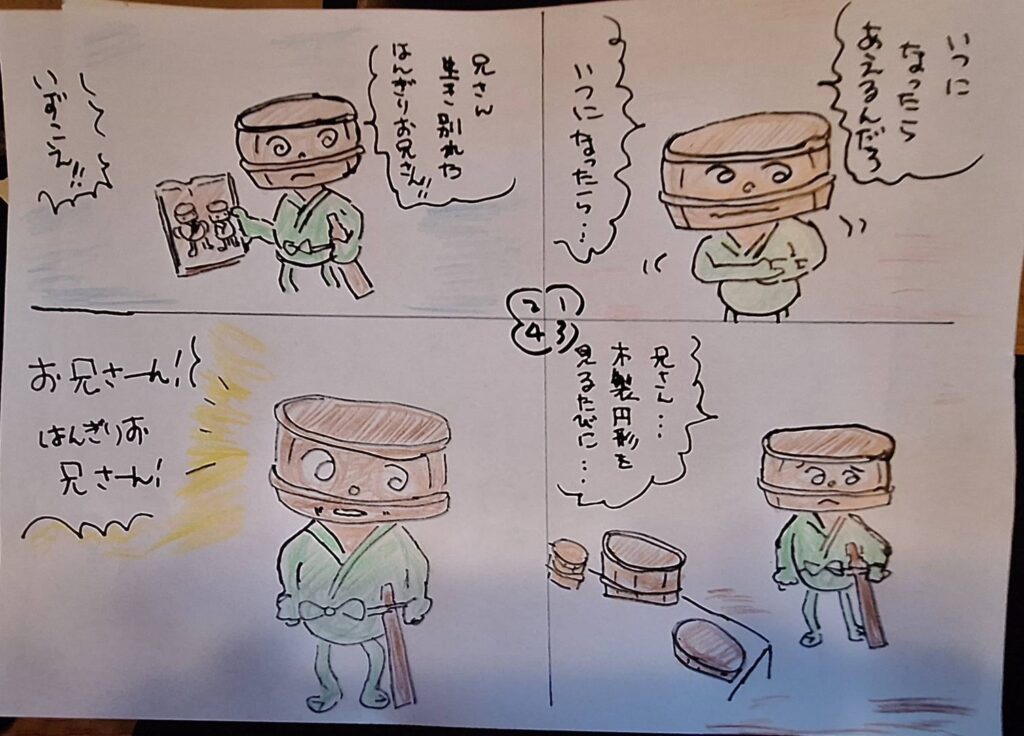 いつに
なったら
あえるんだろ
いつになったら…
1
兄さん
生き別れた
はんぎりお兄さん!!
いずこえ!!
2
兄さん…
木製円形を
見るたびに…
3
お兄さーん!
はんぎりお
兄さーん!
4